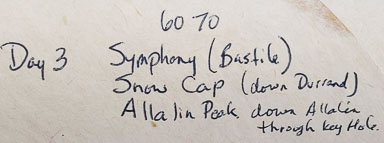 60 70
Day 3 Symphony (Bastile)
Snow Cap (down Durrand)
Allalin Peak down Allalin
through key Hole.